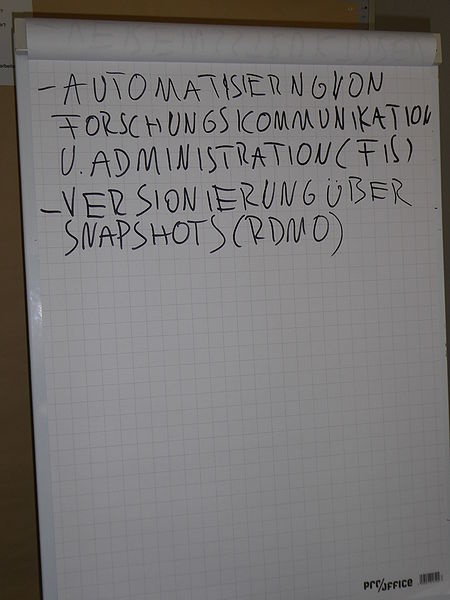 - AUTOMATISIERNG VON
FORSCHUNGSKOMMUNIKATION
U. ADMINISTRATION (FIS)
- VERSIONIERUNG ÜBER
SNAPSHOTS (RDMO)
pro/office